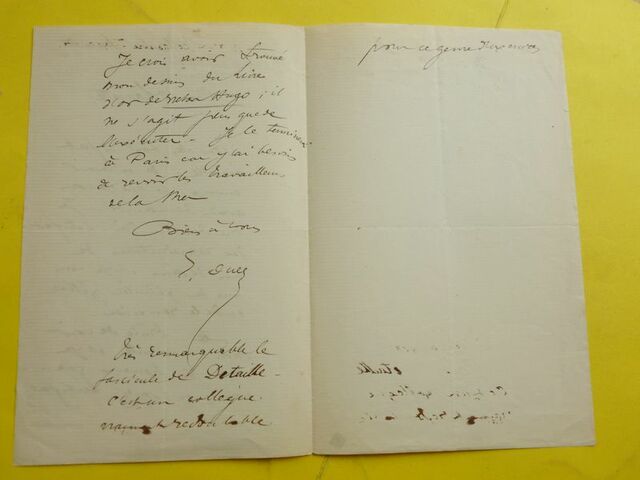 Je crois avoir trouvé
mon dessin du Livre
d'or de Victor Hugo ; il
ne s'agit plus que de
l'exécuter - Je le terminerai
à Paris car j'ai besoin
de revoir les travailleurs
de la Mer
Bien à vous
E. Duez
très remarquable le
fascicule de Detaille -
c'est un collègue
vraiment redoutable
pour ce genre d'exercices